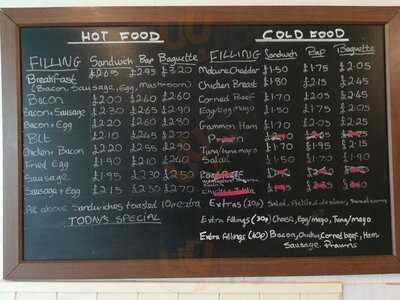 HOT FOOD
FILLING Sandwich Bap Baguette
Breakfast £2.65 £2.95 £3.20
(Bacon, Sausage, Egg, Mushroom)
Bacon £2.00 £2.60 £2.60
Bacon + Sausage £2.30 £2.65 £2.90
Bacon + Egg £2.20 £2.60 £2.80
BLT £2.10 £2.45 £2.70
Chicken Bacon £2.20 £2.55 £2.90
Fried Egg £1.90 £2.10 £2.40
Sausage £1.95 £2.30 £2.50
Sausage + Egg £2.15 £2.50 £2.70
All above Sandwiches toasted 10p extra
TODAY'S SPECIAL
COLD FOOD
FILLING Sandwich Bap Baguette
Mature Cheddar £1.50 £1.75 £2.05
Chicken Breast £1.80 £2.15 £2.45
Corned Beef £1.70 £2.05 £2.45
Egg/Egg Mayo £1.50 £1.75 £2.05
Gammon Ham £1.70 £2.05
Prawn
Tuna/tuna mayo £1.70 £1.95 £2.15
Salad £1.50 £1.70 £1.90
Extras (20p) Salad, Pickle, Coleslaw, Sweetcorn
Extra Fillings (30p) Cheese, Egg/mayo, Tuna/mayo
Extra Fillings (60p) Bacon, Chicken, Corned beef, Ham
Sausage, Prawns